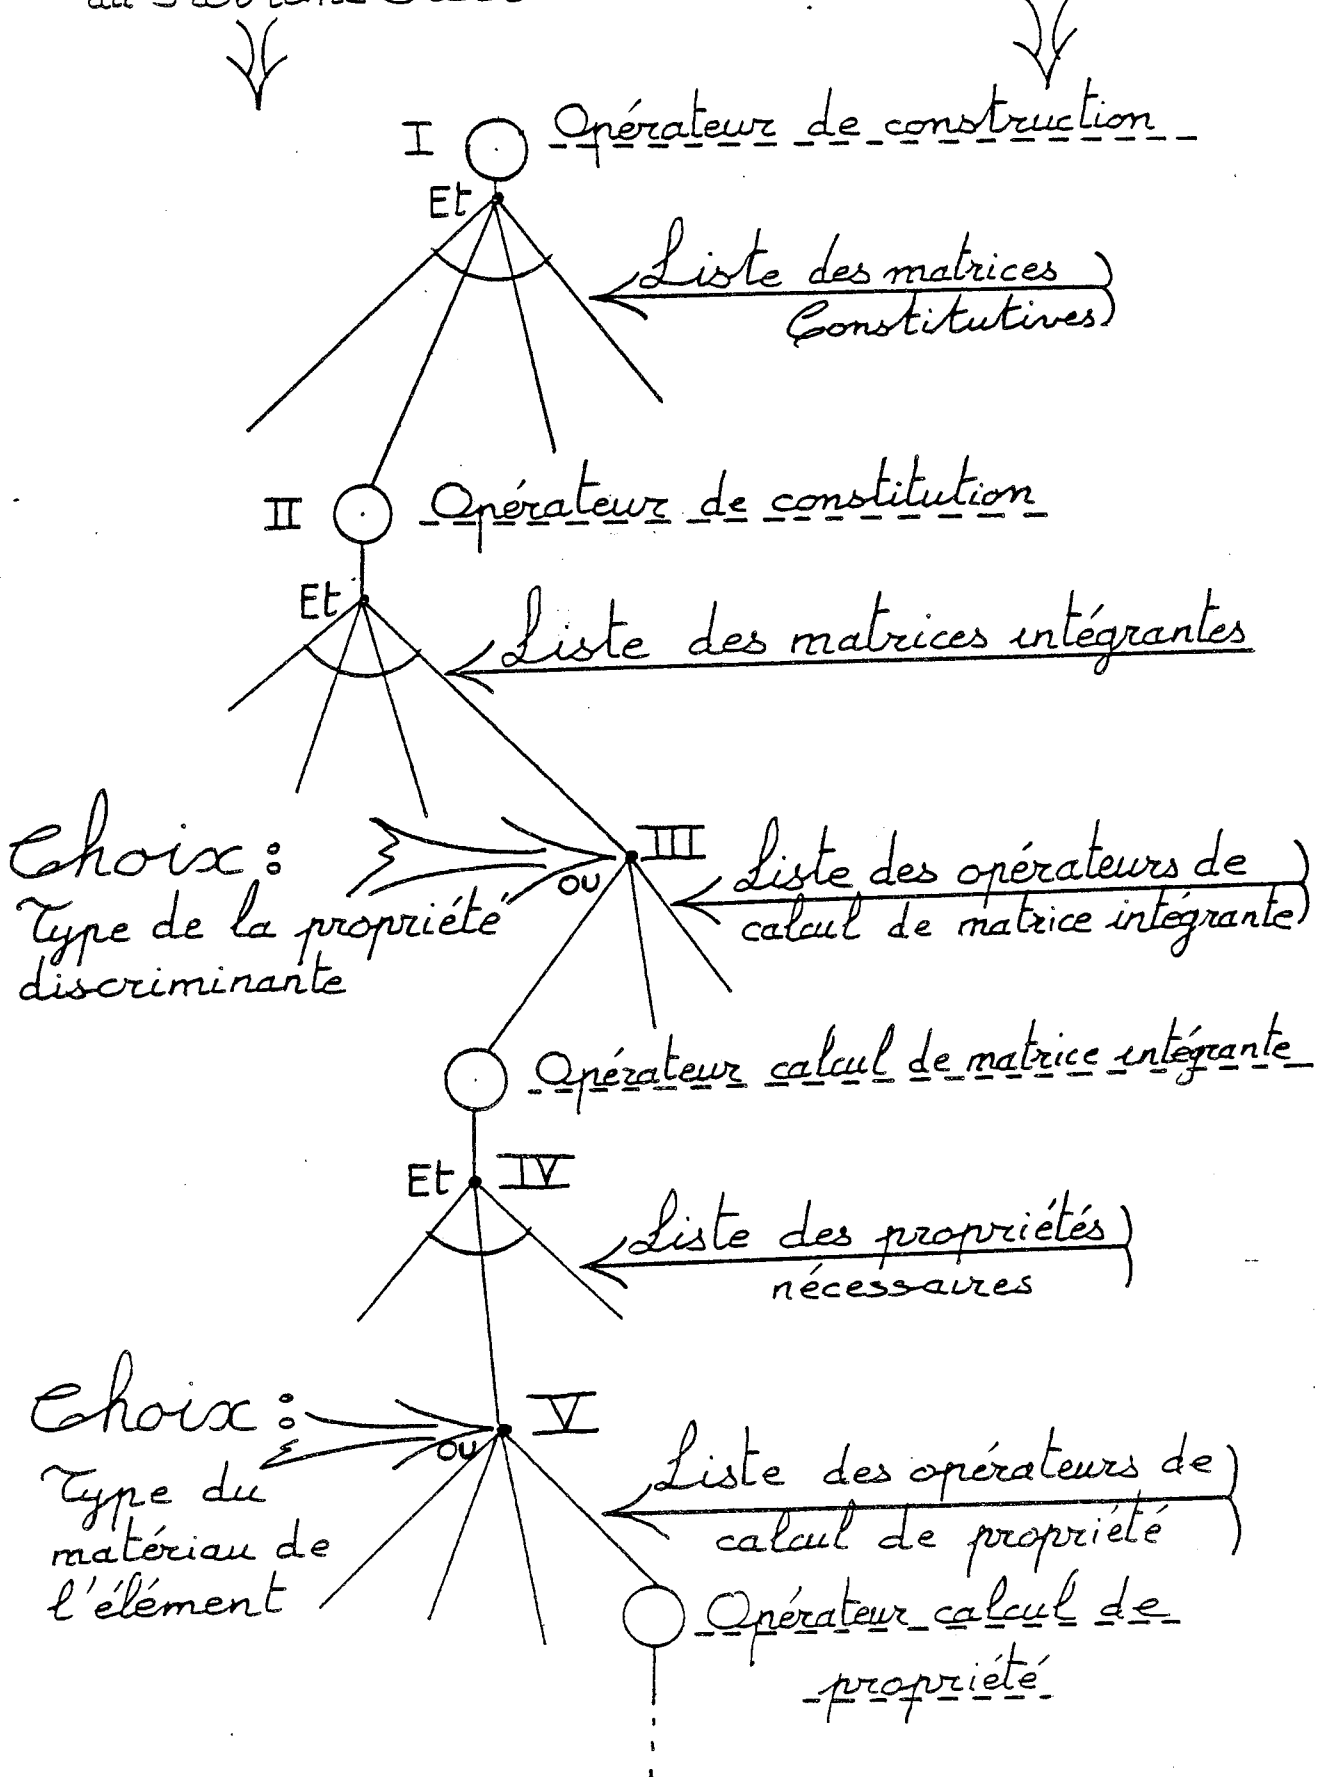 I Opérateur de construction
Et
Liste des matrices
Constitutives
II Opérateur de constitution
Et
Liste des matrices intégrantes
Choix :
Type de la propriété
discriminante
III
ou
Liste des opérateurs de
calcul de matrice intégrante
Opérateur calcul de matrice intégrante
Et IV
Liste des propriétés
nécessaires
Choix :
Type du
matériau de
l'élément
V
ou
Liste des opérateurs de
calcul de propriété
Opérateur calcul de
propriété